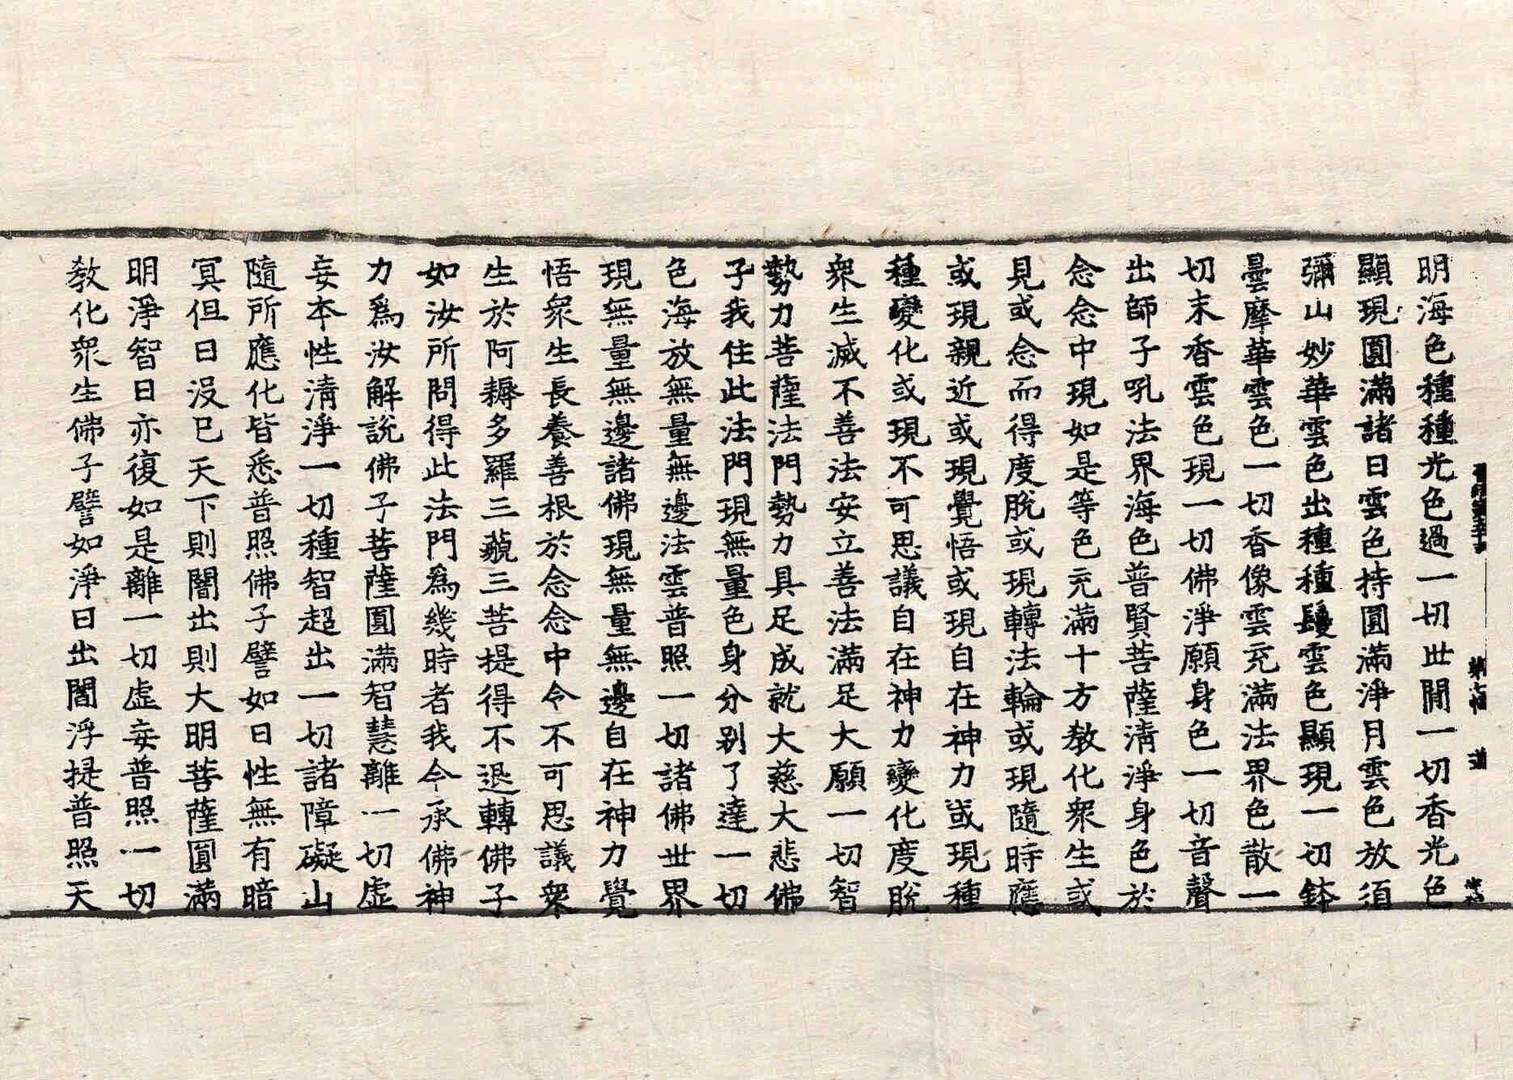 明海色種種光色過一切世間一切香光色
顯現圓滿諸日雲色持圓滿淨月雲色放須
彌山妙華雲色出種種鬘雲色顯現一切鉢
曇摩華雲色一切香像雲充滿法界色散一
切末香雲色現一切佛淨願身色一切音聲
出師子吼法界海色普賢菩薩清淨身色於
念念中現如是等色充滿十方教化衆生或
見或念而得度脫或現轉法輪或現隨時應
或現親近或現覺悟或現自在神力或現種
種變化或現不可思議自在神力變化度脫
衆生滅不善法安立善法滿足大願一切智
勢力菩薩法門勢力具足成就大慈大悲佛
子我住此法門現無量色身分別了達一切
色海放無量無邊法雲普照一切諸佛世界
現無量無邊諸佛現無量無邊自在神力覺
悟衆生長養善根於念念中令不可思議衆
生於阿耨多羅三藐三菩提得不退轉佛子
如汝所問得此法門爲幾時者我今承佛神
力爲汝解說佛子菩薩圓滿智慧離一切虛
妄本性清淨一切種智超出一切諸障礙山
隨所應化皆悉普照佛子譬如日性無有暗
冥但日沒已天下則闇出則大明菩薩圓滿
明淨智日亦復如是離一切虛妄普照一切
教化衆生佛子譬如淨日出閻浮提普照天